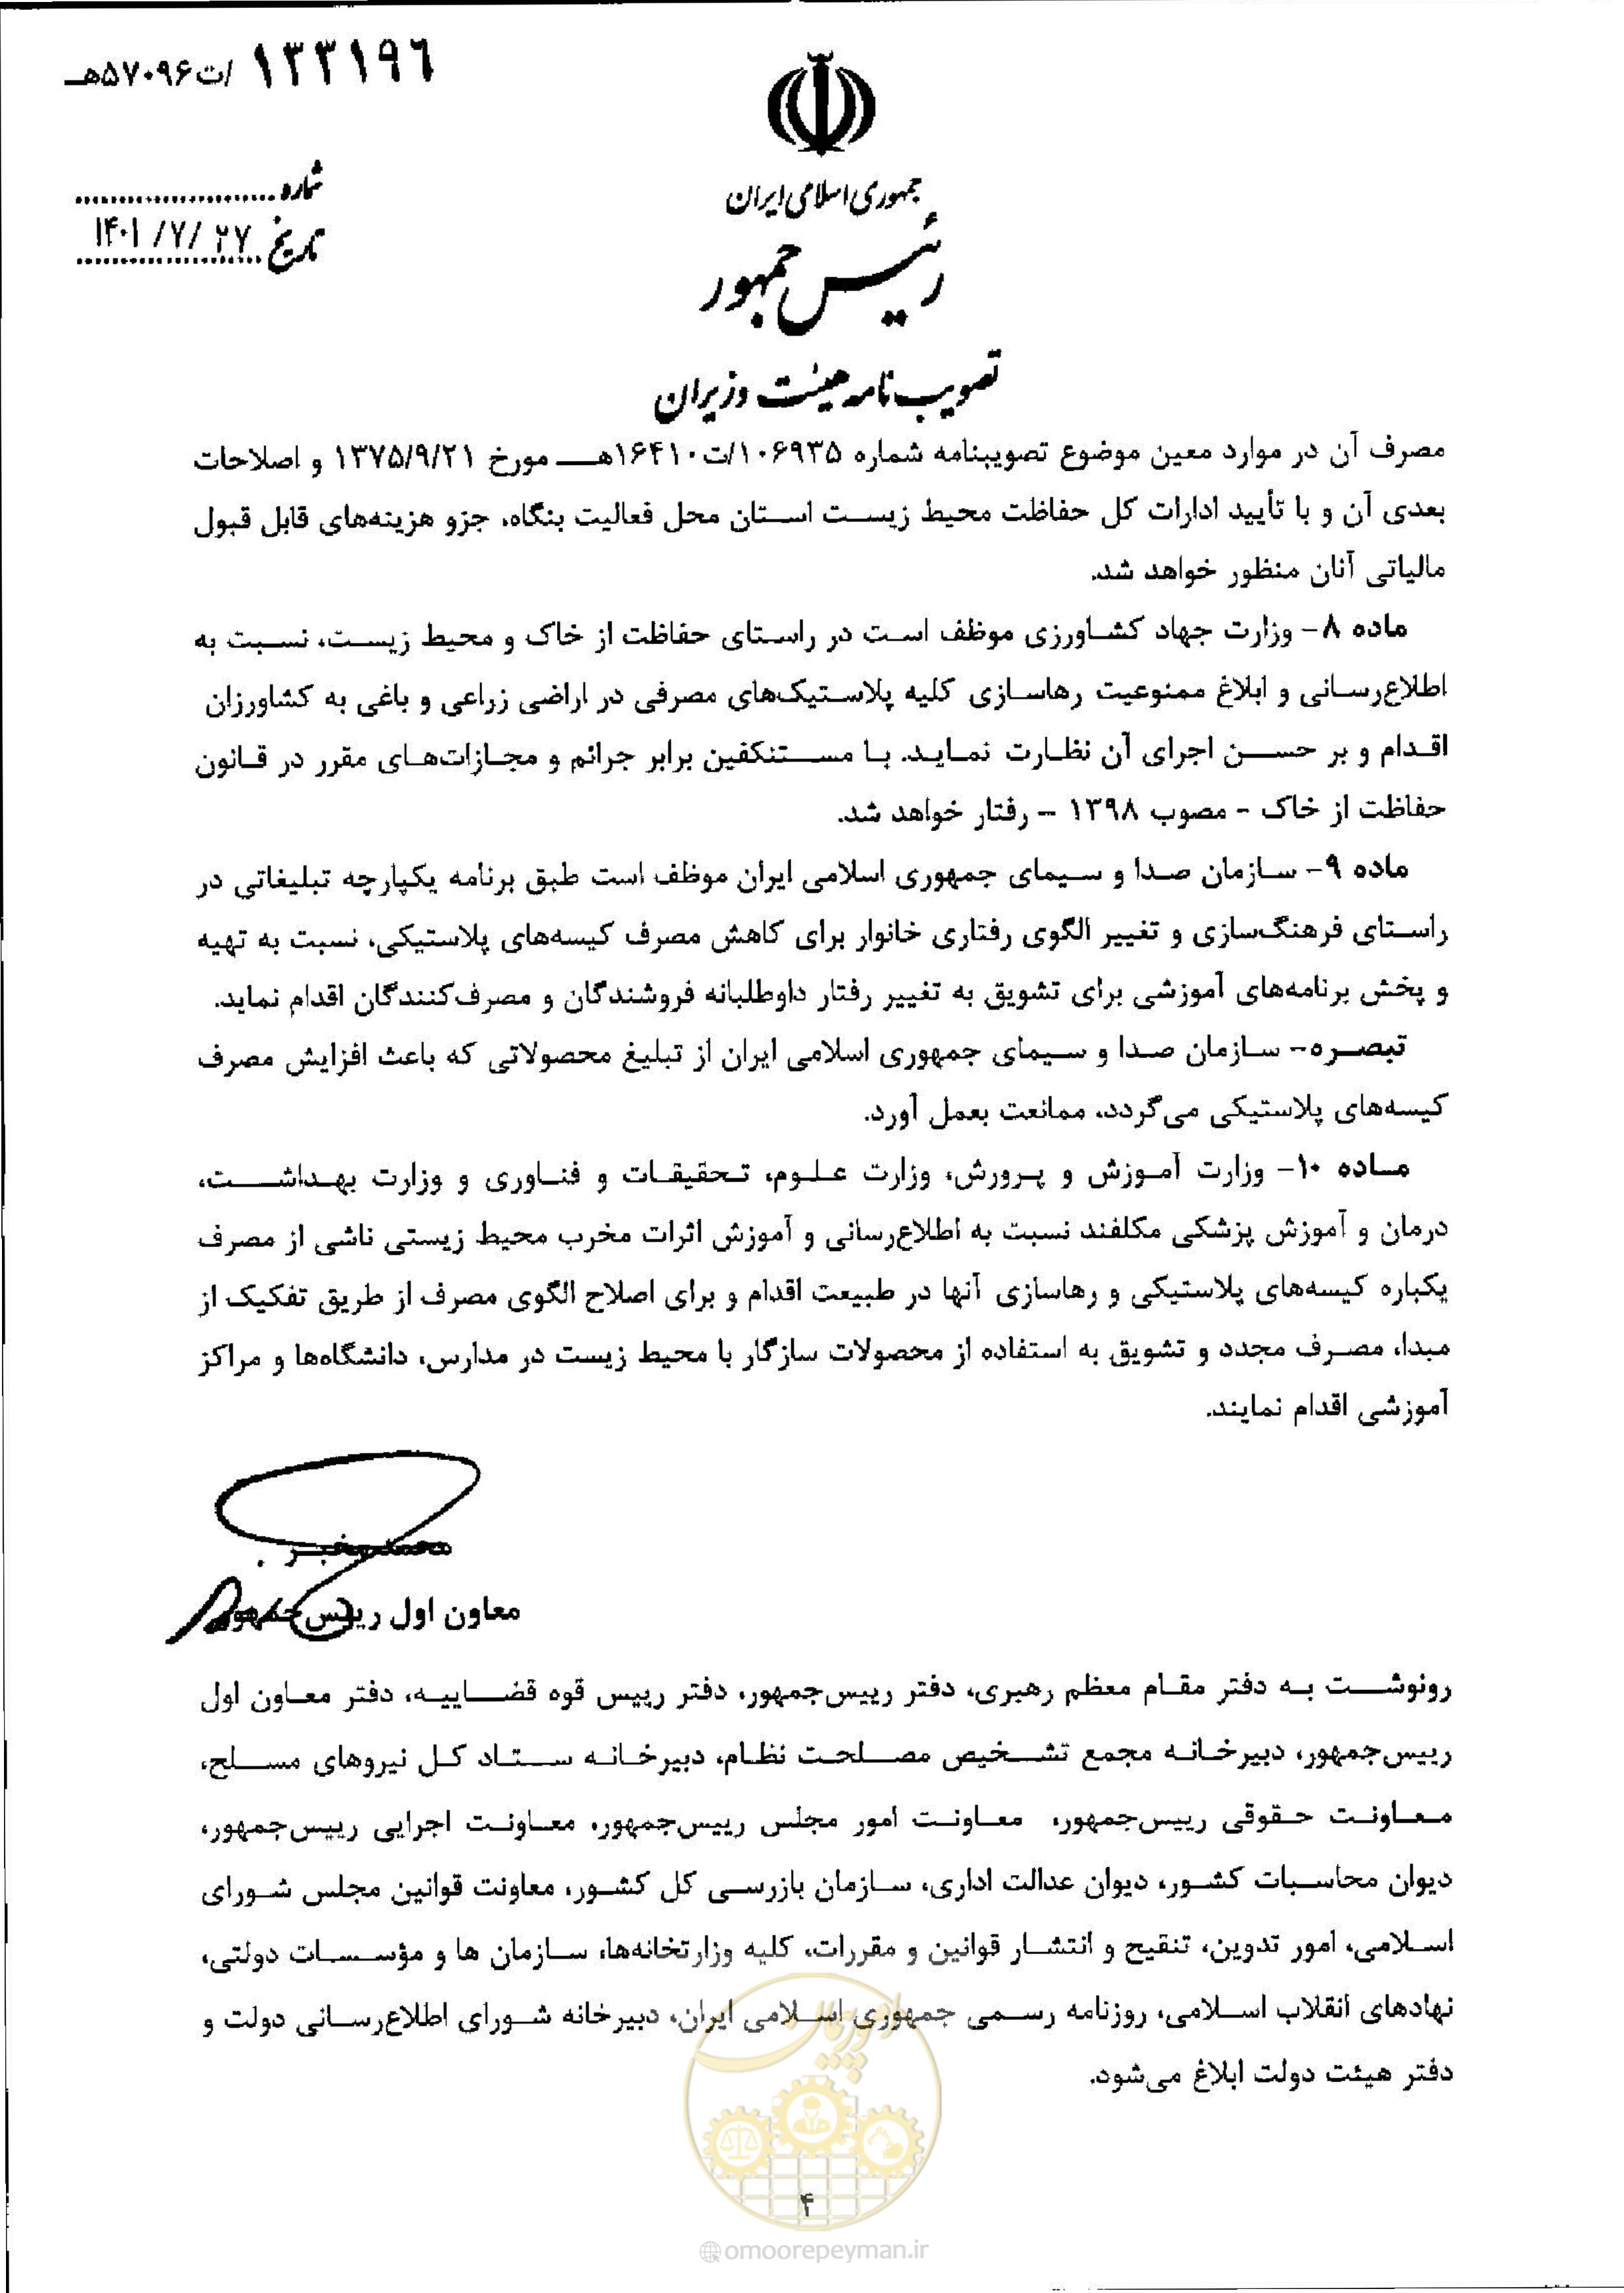 ۱۳۳۱۹۶ /ت۵۷۰۹۶هـ
جمهوری اسلامی ایران
رئیس جمهور
شماره
تاریخ ۱۴۰۱/۷/۲۷
تصویب نامه هیئت وزیران
مصرف آن در موارد معین موضوع تصویبنامه شماره ۱۰۶۹۳۵/ت۱۶۴۱۰هـ مورخ ۱۳۷۵/۹/۲۱ و اصلاحات
بعدی آن و با تأیید ادارات کل حفاظت محیط زیست استان محل فعالیت بنگاه، جزو هزینه‌های قابل قبول
مالیاتی آنان منظور خواهد شد.
ماده ۸- وزارت جهاد کشاورزی موظف است در راستای حفاظت از خاک و محیط زیست، نسبت به
اطلاع‌رسانی و ابلاغ ممنوعیت رهاسازی کلیه پلاستیک‌های مصرفی در اراضی زراعی و باغی به کشاورزان
اقدام و بر حسن اجرای آن نظارت نماید. با مستنکفین برابر جرائم و مجازات‌های مقرر در قانون
حفاظت از خاک - مصوب ۱۳۹۸ - رفتار خواهد شد.
ماده ۹- سازمان صدا و سیمای جمهوری اسلامی ایران موظف است طبق برنامه یکپارچه تبلیغاتی در
راستای فرهنگ‌سازی و تغییر الگوی رفتاری خانوار برای کاهش مصرف کیسه‌های پلاستیکی، نسبت به تهیه
و پخش برنامه‌های آموزشی برای تشویق به تغییر رفتار داوطلبانه فروشندگان و مصرف‌کنندگان اقدام نماید.
تبصره- سازمان صدا و سیمای جمهوری اسلامی ایران از تبلیغ محصولاتی که باعث افزایش مصرف
کیسه‌های پلاستیکی می‌گردد، ممانعت بعمل آورد.
ماده ۱۰- وزارت آموزش و پرورش، وزارت علوم، تحقیقات و فناوری و وزارت بهداشت،
درمان و آموزش پزشکی مکلفند نسبت به اطلاع‌رسانی و آموزش اثرات مخرب محیط زیستی ناشی از مصرف
یکباره کیسه‌های پلاستیکی و رهاسازی آنها در طبیعت اقدام و برای اصلاح الگوی مصرف از طریق تفکیک از
مبدا، مصرف مجدد و تشویق به استفاده از محصولات سازگار با محیط زیست در مدارس، دانشگاه‌ها و مراکز
آموزشی اقدام نمایند.
محمد مخبر
معاون اول رییس‌جمهور
رونوشت به دفتر مقام معظم رهبری، دفتر رییس‌جمهور، دفتر رییس قوه قضاییه، دفتر معاون اول
رییس‌جمهور، دبیرخانه مجمع تشخیص مصلحت نظام، دبیرخانه ستاد کل نیروهای مسلح،
معاونت حقوقی رییس‌جمهور، معاونت امور مجلس رییس‌جمهور، معاونت اجرایی رییس‌جمهور،
دیوان محاسبات کشور، دیوان عدالت اداری، سازمان بازرسی کل کشور، معاونت قوانین مجلس شورای
اسلامی، امور تدوین، تنقیح و انتشار قوانین و مقررات، کلیه وزارتخانه‌ها، سازمان ها و مؤسسات دولتی،
نهادهای انقلاب اسلامی، روزنامه رسمی جمهوری اسلامی ایران، دبیرخانه شورای اطلاع‌رسانی دولت و
دفتر هیئت دولت ابلاغ می‌شود.
امور پیمان
۴
@omoorepeyman.ir